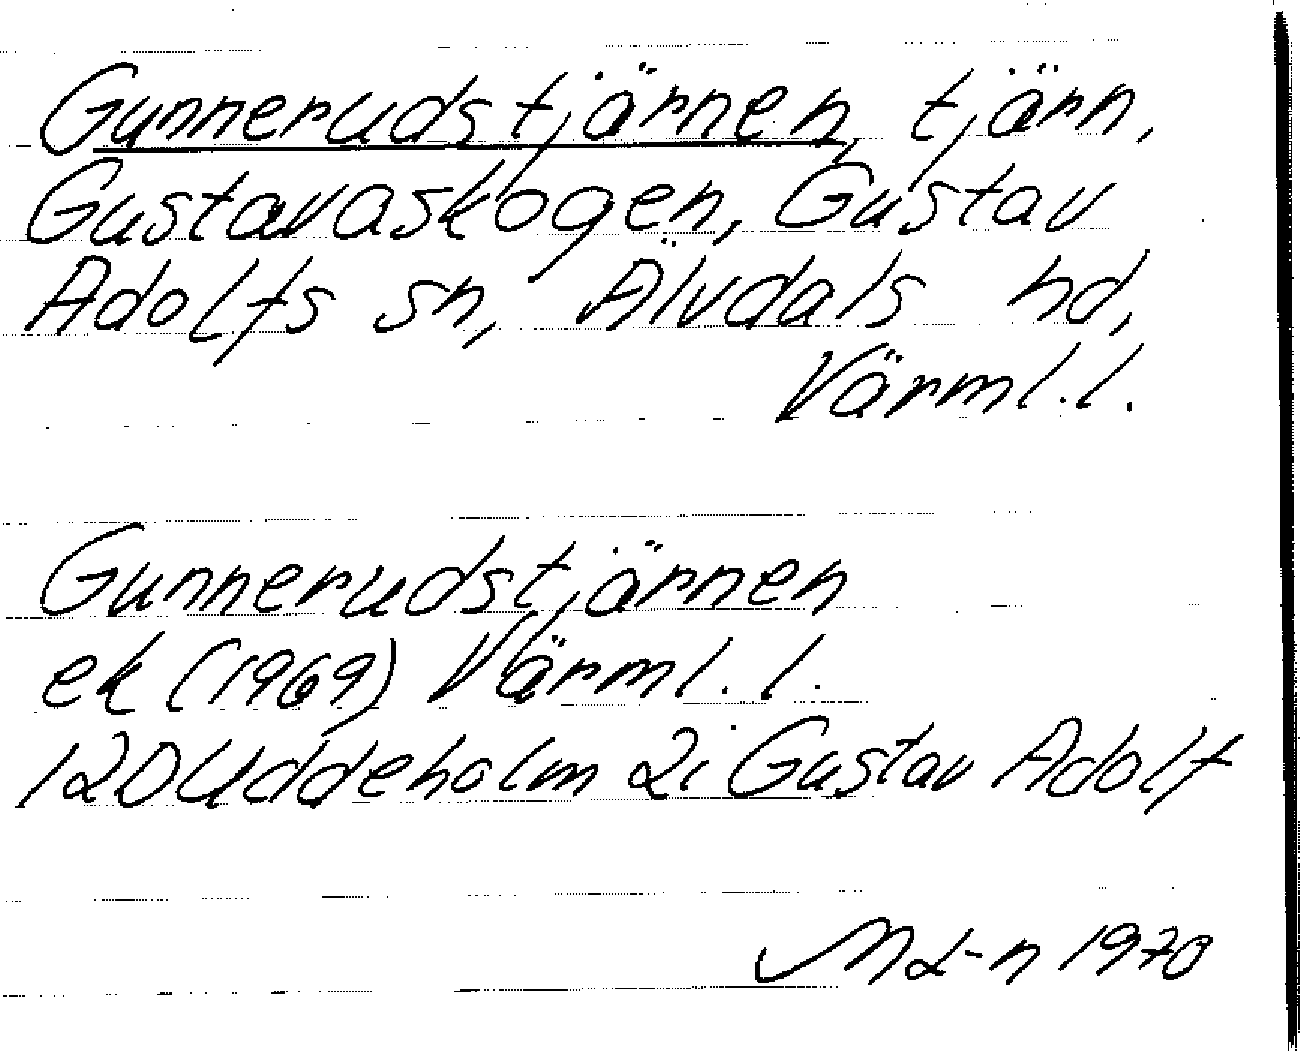 Gunnerudstjärnen, tjärn,
Gustavaskogen, Gustav
Adolfs sn, Älvdals hd,
Värml. l.
Gunnerudstjärnen
ek (1969) Värml. l.
12D Uddeholm 2i Gustav Adolf
1970